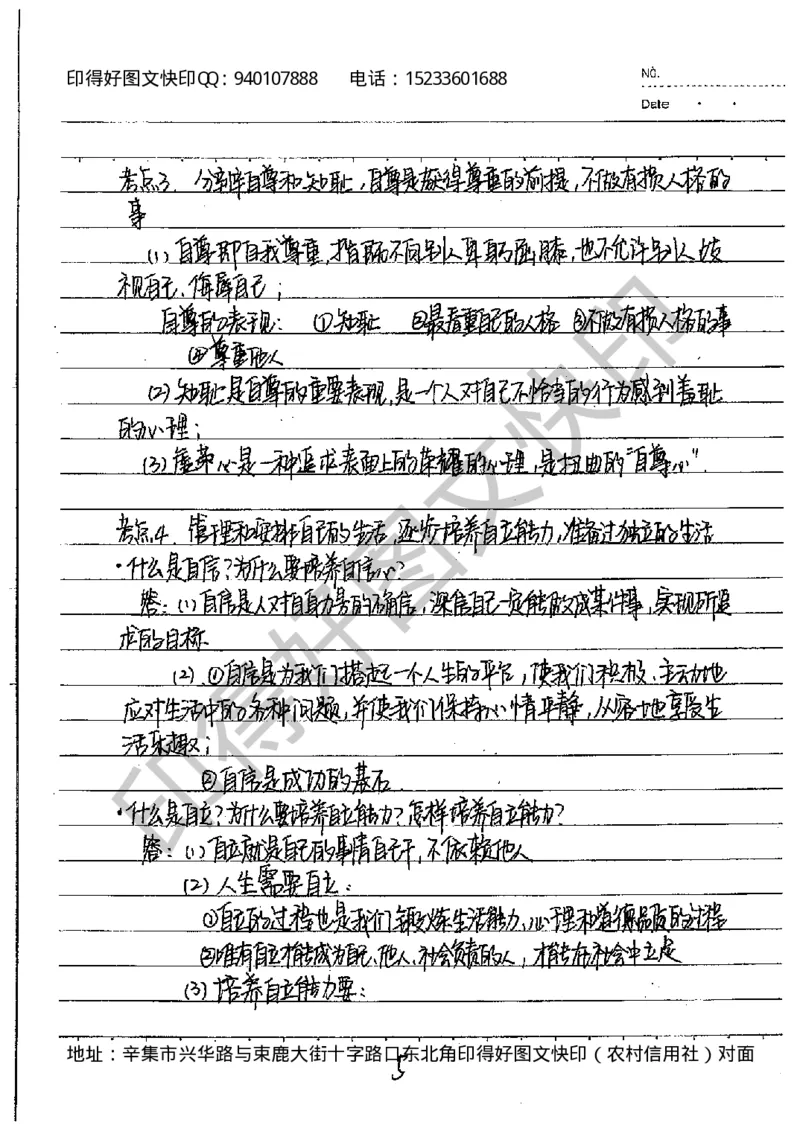 印得好图文快印QQ：940107888 电话：15233601688
No.
Date · ·
考点3. 分辨自尊和知耻,自尊是获得尊重的前提,不做有损人格的
事
(1) 自尊即自我尊重,指既不向别人卑躬屈膝,也不允许别人歧
视自己、侮辱自己；
自尊的表现: ①知耻 ②最看重自己的人格 ③不做有损人格的事
④尊重他人
(2) 知耻是自尊的重要表现,是一个人对自己不恰当的行为感到羞耻
的心理；
(3) 虚荣心是一种追求表面上的荣耀的心理,是扭曲的"自尊心".
考点4. 管理和安排自己的生活,逐步培养自立能力,准备过独立的生活
·什么是自信?为什么要培养自信心?
答: (1) 自信是人对自身力量的确信,深信自己一定能做成某件事,实现所追
求的目标
(2) ①自信是为我们搭起一个人生的平台,使我们积极、主动地
应对生活中的各种问题,并使我们保持心情平静,从容地享受生
活乐趣；
②自信是成功的基石.
·什么是自立?为什么要培养自立能力?怎样培养自立能力?
答: (1) 自立就是自己的事情自己干,不依赖他人
(2) 人生需要自立:
①自立的过程也是我们锻炼生活能力,心理和道德品质的过程
②唯有自立才能成为自己、他人、社会负责的人,才能在社会中立足
(3) 培养自立能力要:
地址：辛集市兴华路与束鹿大街十字路口东北角印得好图文快印（农村信用社）对面
5
印得好图文快印